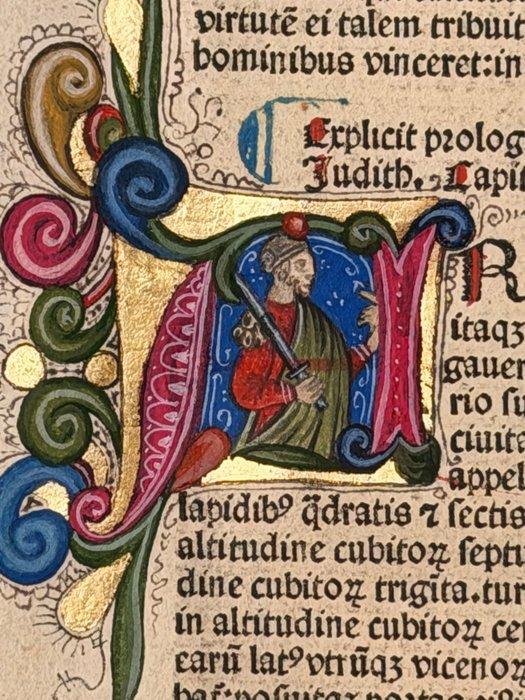 virtutē ei talem tribuit
hominibus vinceret:in
Explicit prolog
Judith. Capi
A R
itaqꝫ
gauer
rio su
ciuita
appel
lapidibꝰ q̄dratis ⁊ sectis
altitudine cubitoꝝ septu
dine cubitoꝝ trigīta.tur
in altitudine cubitoꝝ ce
earū latꝰ vtrūqꝫ vicenoꝝ